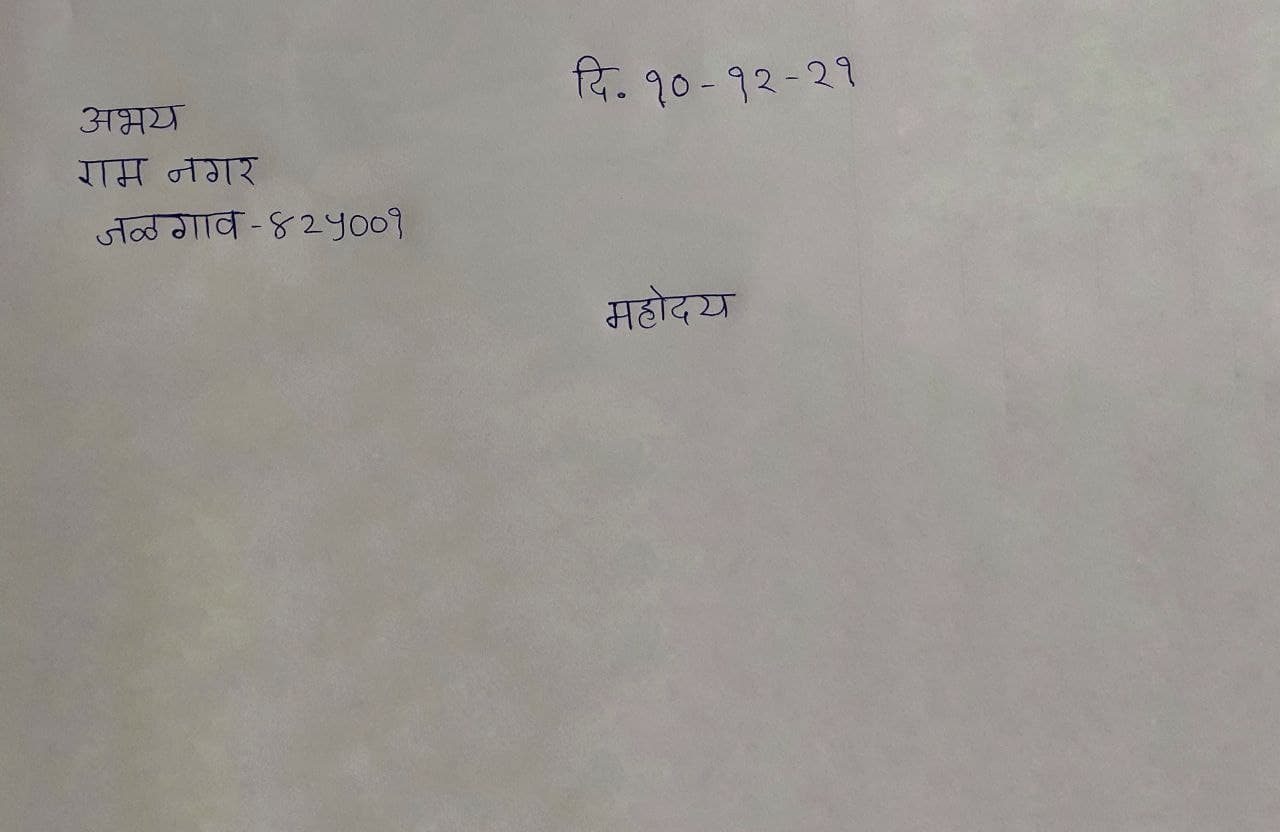 दि. १०-१२-२१
अभय
राम नगर
जळगाव-४२५००१
महोदय